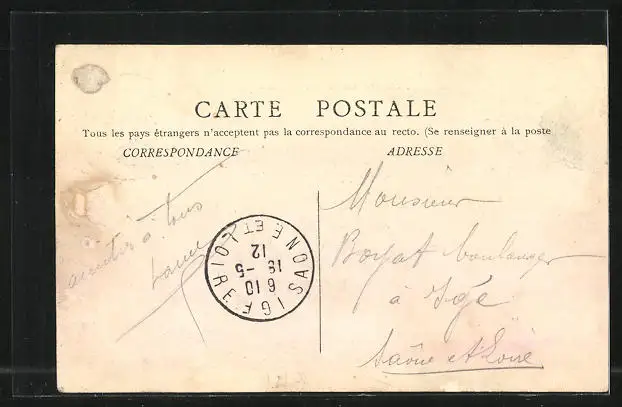 CARTE POSTALE
Tous les pays étrangers n'acceptent pas la correspondance au recto. (Se renseigner à la poste
CORRESPONDANCE
ADRESSE
à tous
Monsieur
Boyat boulanger
à Igé
Saône et Loire
IGE SAONE ET LOIRE
6 10
18 -5
12